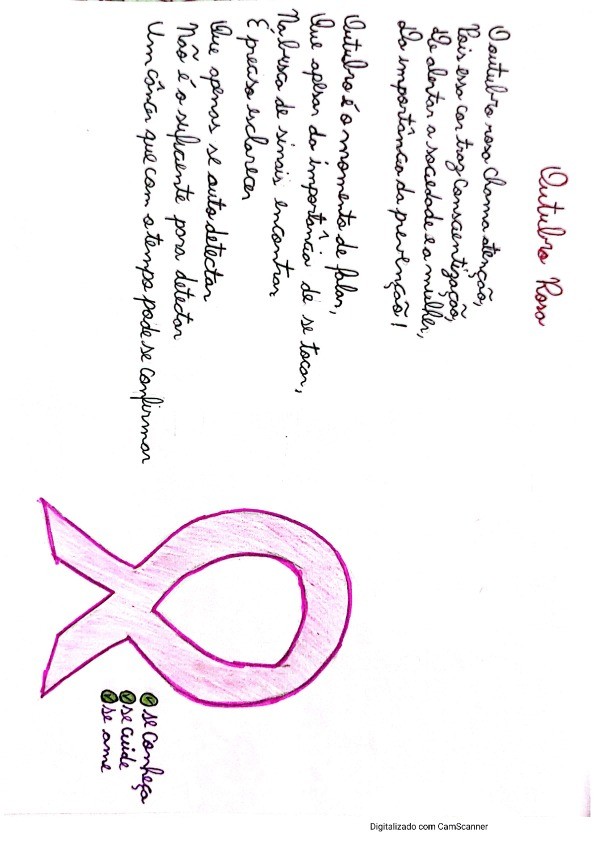 Outubro Rosa
O outubro rosa chama atenção,
Pois essa cor traz conscientização,
De alertar a sociedade e a mulher,
Da importância da prevenção!
Outubro é o momento de falar,
Que apesar da importância de se tocar,
Na busca de sinais encontrar
É preciso esclarecer
Que apenas se auto detectar
Não é o suficiente para detectar
Um câncer que com o tempo pode se confirmar
se conheça
se cuide
se ame
Digitalizado com CamScanner